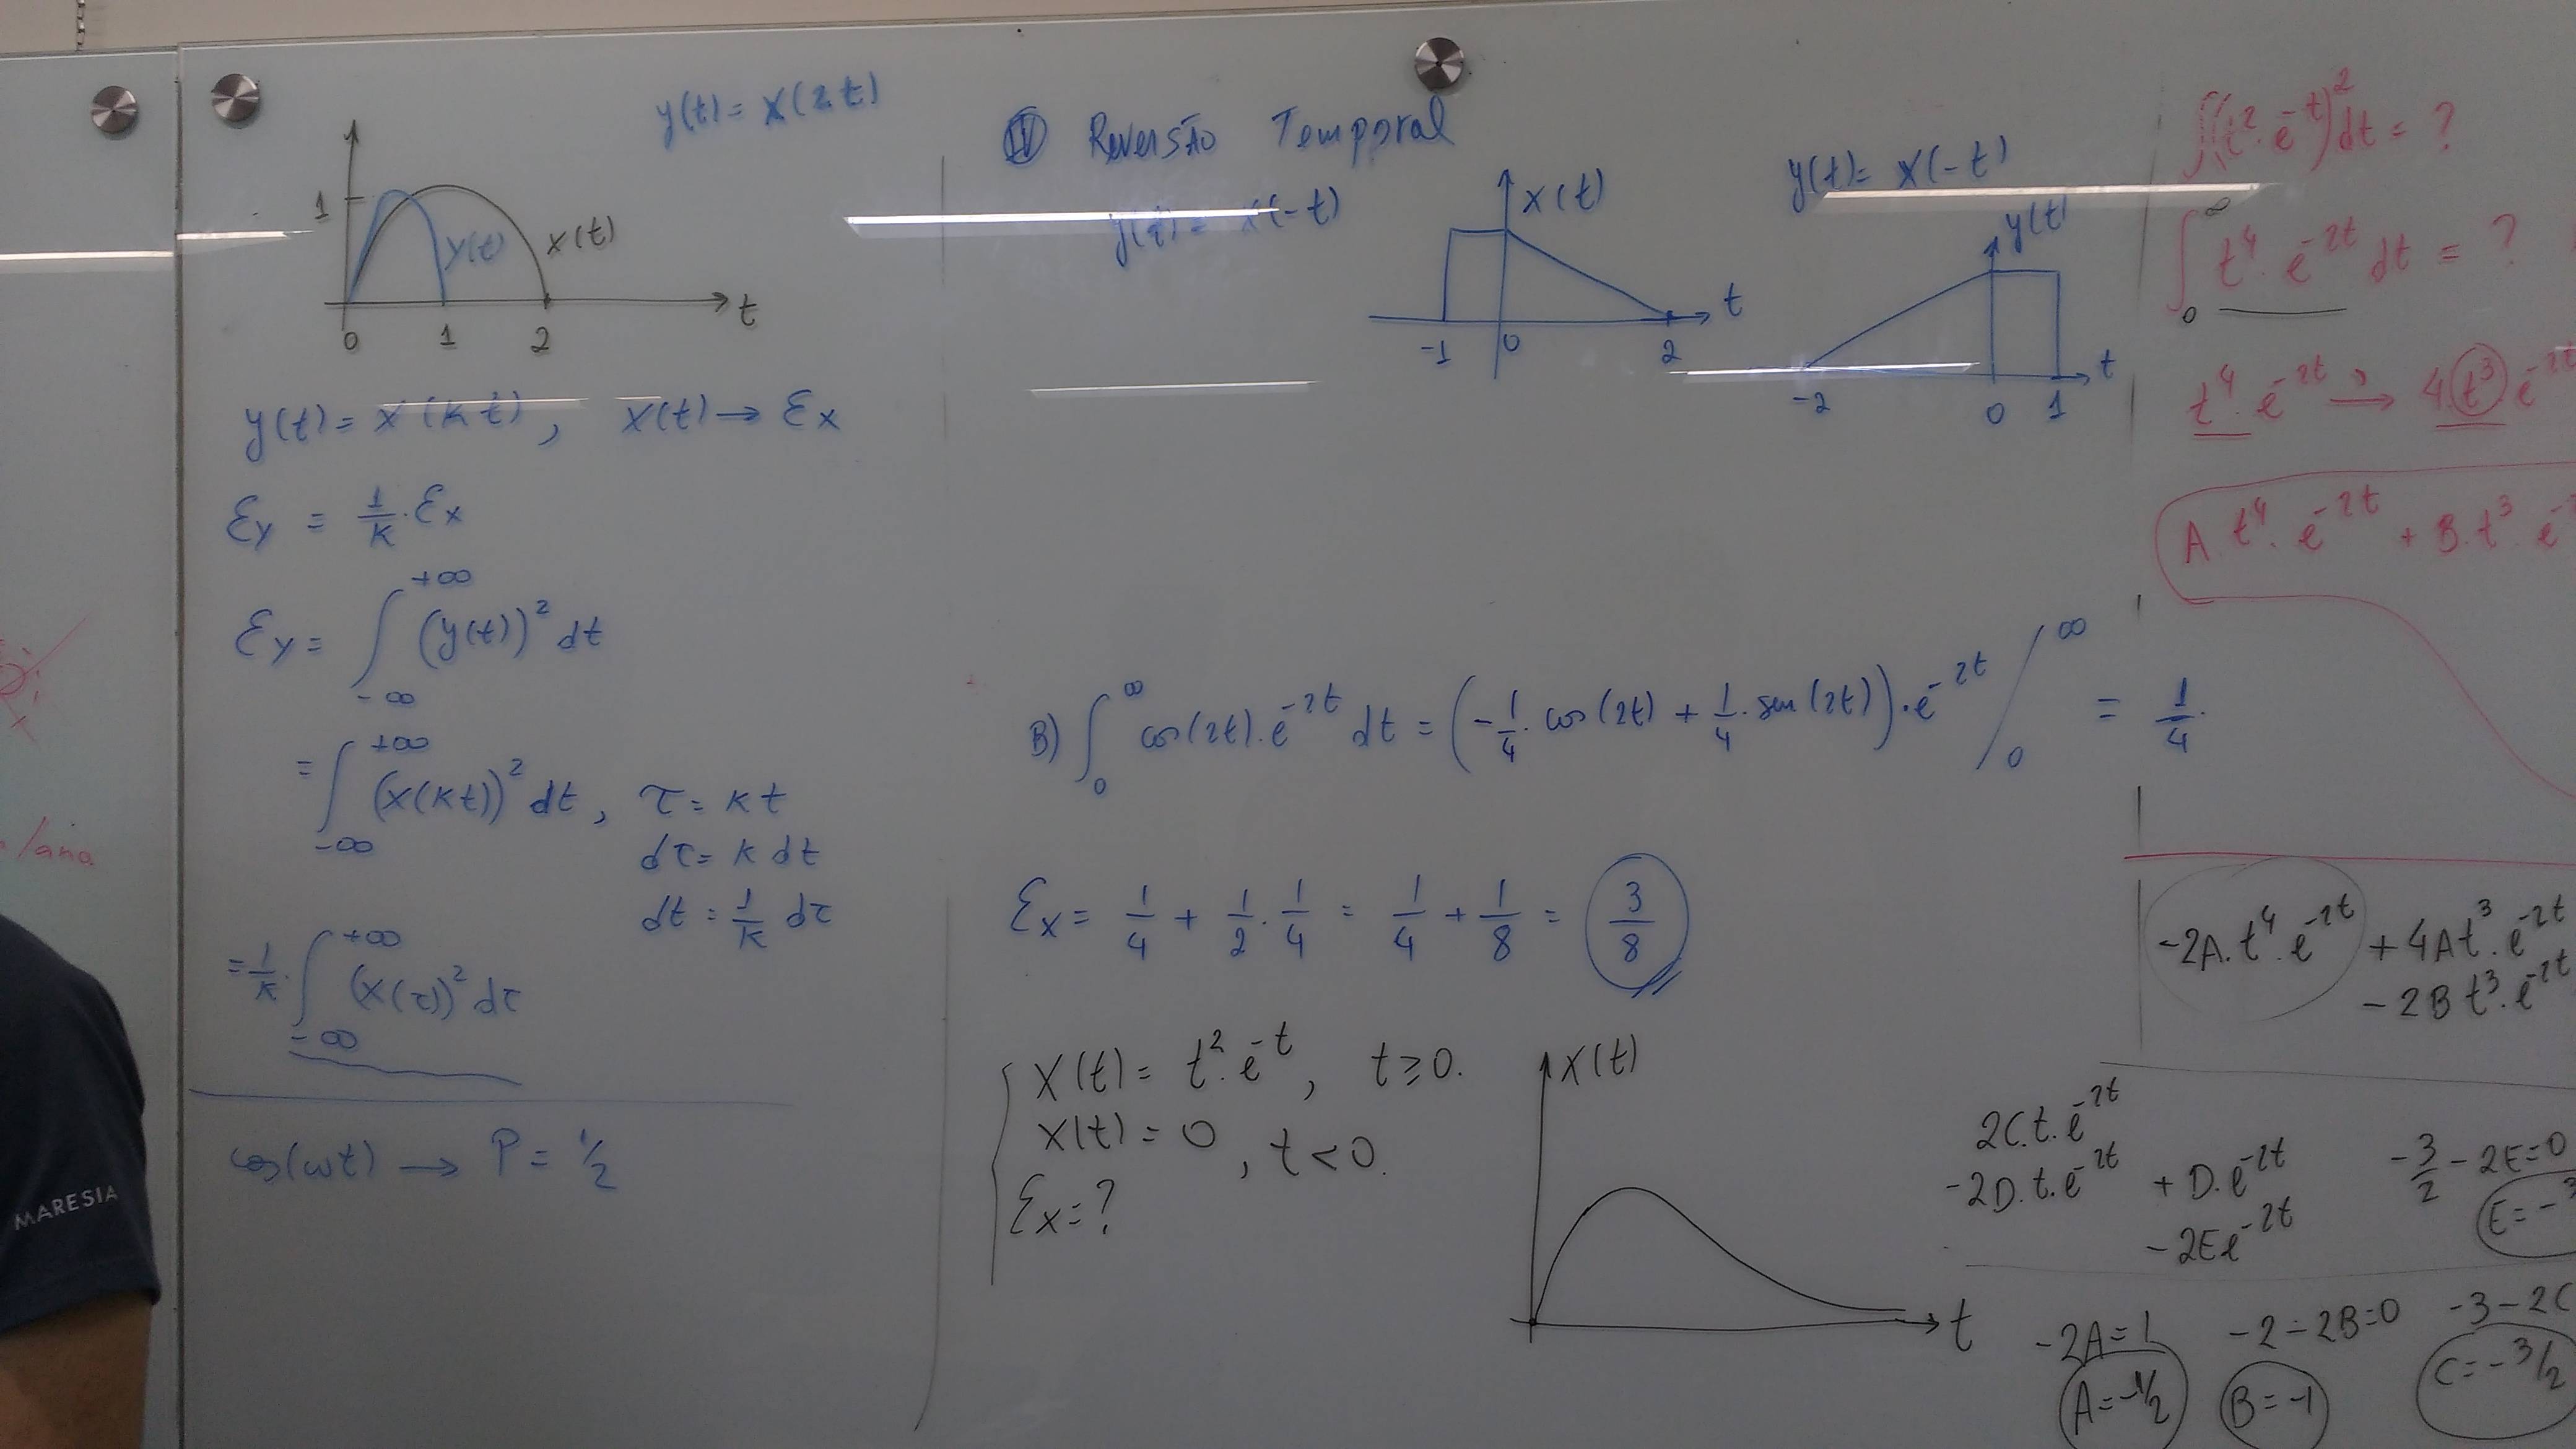 y(t) = x(2t)
1
y(t)
x(t)
t
0 1 2
y(t) = x(kt), x(t) → Ex
Ey = 1/k · Ex
Ey = ∫_{-∞}^{+∞} (y(t))² dt
= ∫_{-∞}^{+∞} (x(kt))² dt, τ = kt
dτ = k dt
dt = 1/k dτ
= 1/k · ∫_{-∞}^{+∞} (x(τ))² dτ
cos(ωt) → P = 1/2
MARESIA
IV Reversão Temporal
y(t) = x(-t)
x(t)
t
-1 0 2
y(t) = x(-t)
y(t)
t
-2 0 1
B) ∫_0^∞ cos(2t).e^{-2t} dt = (-1/4 . cos(2t) + 1/4 . sen(2t)) . e^{-2t} /_0^∞ = 1/4.
Ex = 1/4 + 1/2 . 1/4 = 1/4 + 1/8 = 3/8
x(t) = t².e^{-t}, t ≥ 0.
x(t) = 0, t < 0.
Ex = ?
x(t)
t
t².e^{-t})² dt = ?
∫_0^∞ t⁴.e^{-2t} dt = ?
t⁴.e^{-2t} → 4.t³ e^{-2t}
A.t⁴.e^{-2t} + B.t³.e
-2A.t⁴.e^{-2t} + 4At³.e^{-2t}
-2Bt³.e^{-2t}
2C.t.e^{-2t}
-2D.t.e^{-2t} + D.e^{-2t}
-2Ee^{-2t}
-3/2 - 2E = 0
E = -
-2A = 1
A = -1/2
-2 - 2B = 0
B = -1
-3 - 2C
C = -3/2